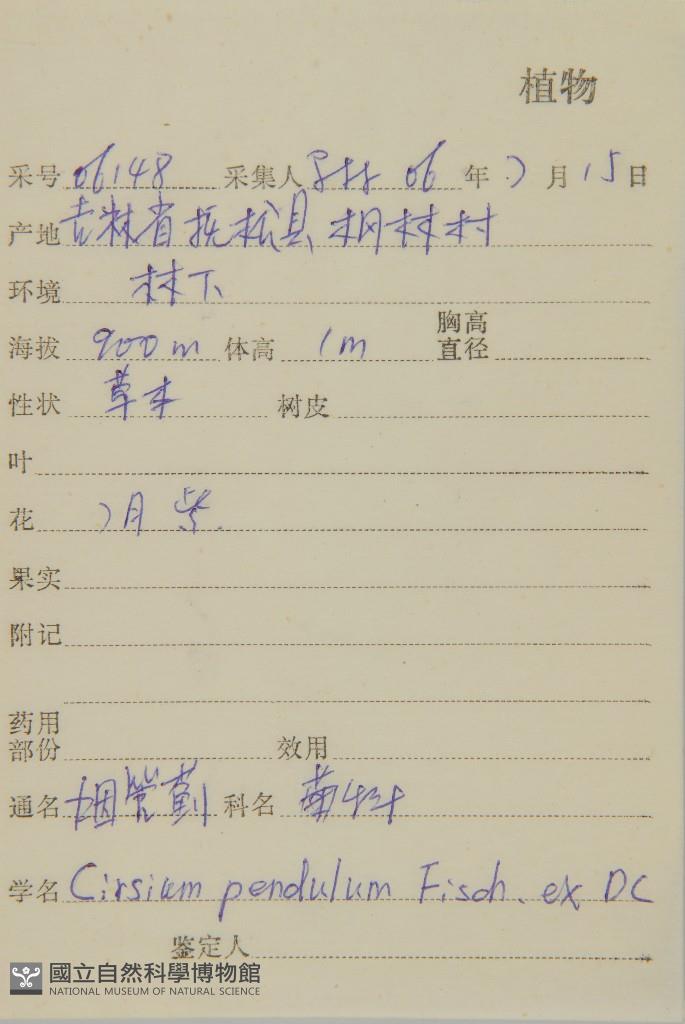 植物
采号 06148 采集人 06 年 7 月 15 日
产地 吉林省抚松县 枫林村
环境 林下
海拔 900m 体高 1m 胸高直径
性状 草本 树皮
叶
花 7月 紫.
果实
附记
药用部份 效用
通名 烟管蓟 科名 菊科
学名 Cirsium pendulum Fisch. ex DC
鉴定人
國立自然科學博物館
NATIONAL MUSEUM OF NATURAL SCIENCE